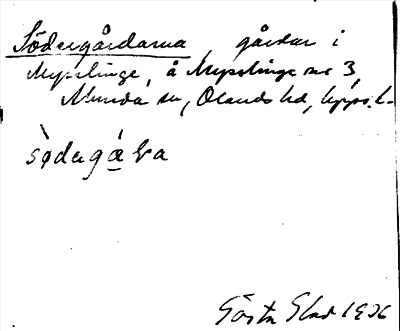 Södergårdarna, gårdar i
Mysslinge, å Mysslinge nr 3,
Munda sn, Olands hd, Upps. l.
södergå̱ḷa
Gösta Glad 1926